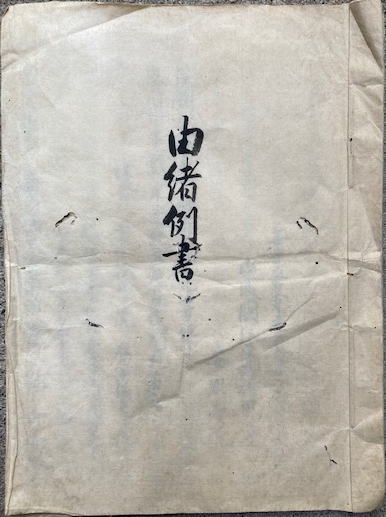 由緒例書